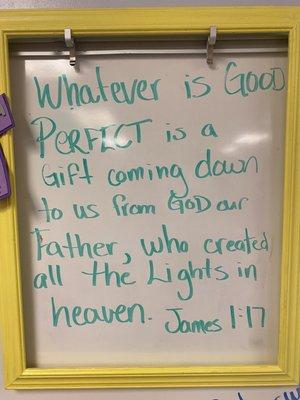 Whatever is GOOD
PERFECT is a
Gift coming down
to us from GOD our
Father, who created
all the Lights in
heaven. James 1:17